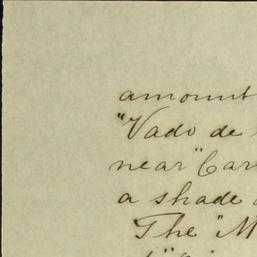 amount
"Vado de
near "Car
a shade
The "M